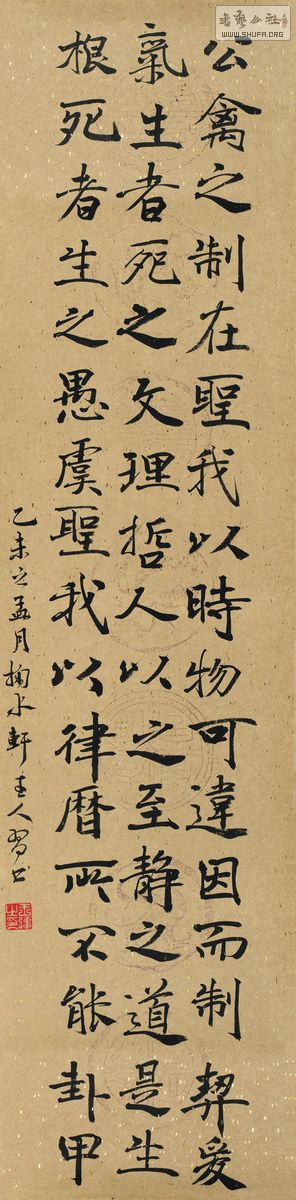 公禽之制在聖我以時物可違因而制契爰
氣生者死之文理哲人以之至靜之道是生
根死者生之愚虞聖我以律暦所不能卦甲
乙未之孟月掬水軒主人習書
書藝公社
WWW.SHUFA.ORG